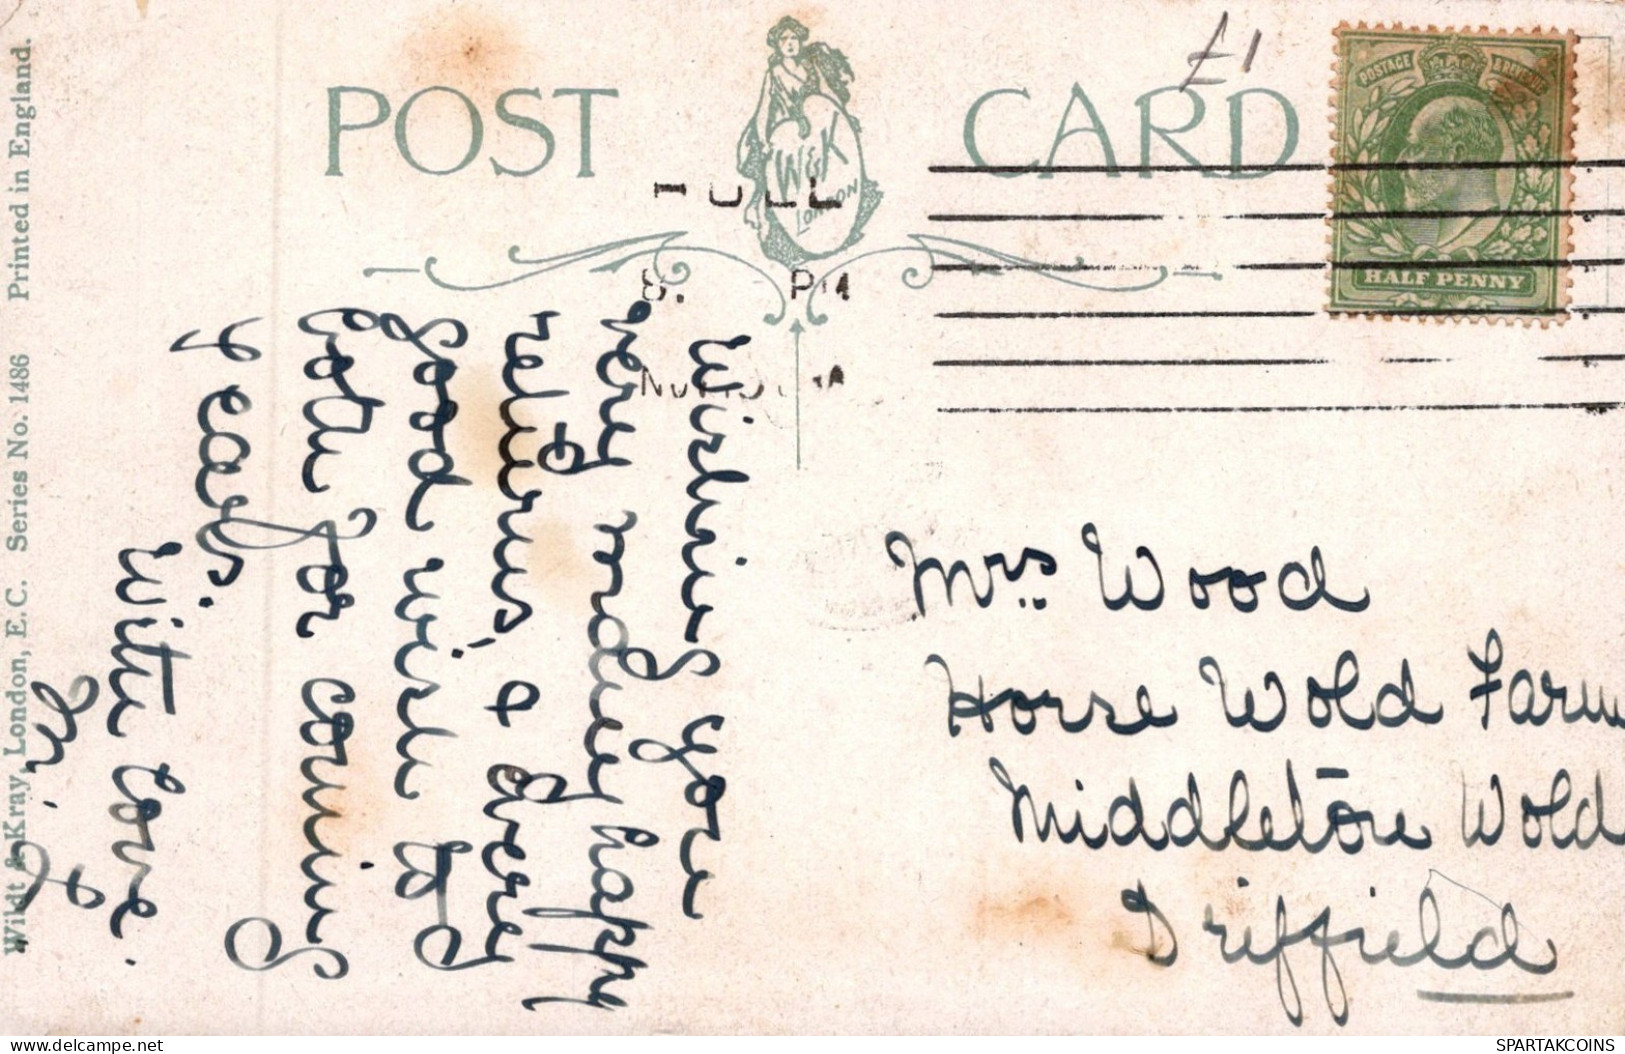 POST CARD
W&K
LONDON
£1
POSTAGE & REVENUE
HALF PENNY
HULL
8. PM
Wishing you
very many happy
returns, & every
good wish to
both for coming
years.
With love.
Mrs. Wood
Horse Wold Farm
Middleton Wold
Driffield
Wildt & Kray, London, E.C. Series No. 1486 Printed in England.
SPARTAKCOINS
www.delcampe.net